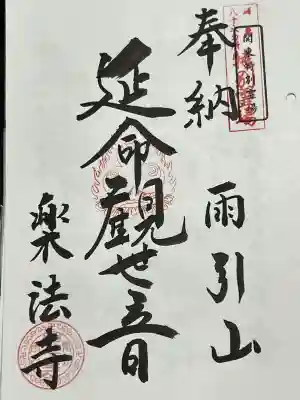 奉納
雨引山
延命観世音
楽法寺